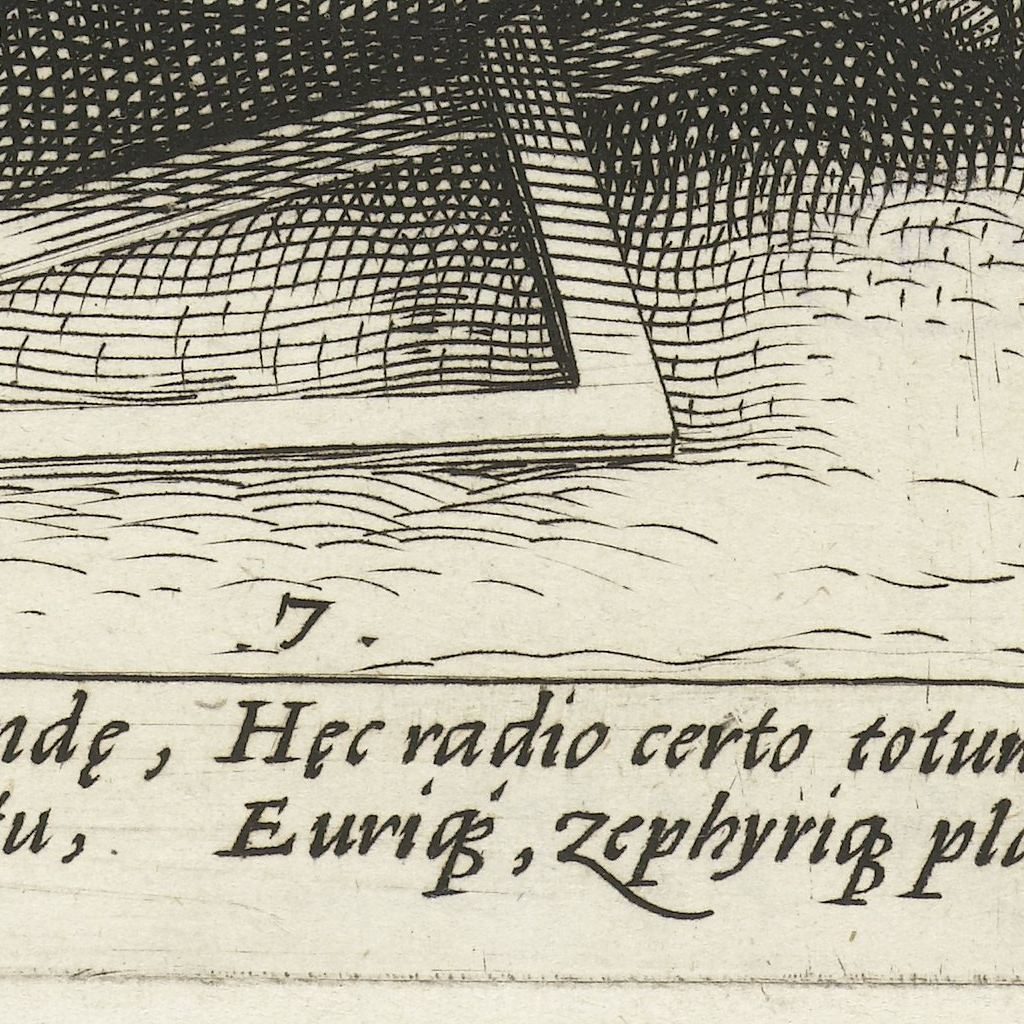 .7.
ndę, Hęc radio certo totum
tu, Euriq́ꝫ, zephyriqꝫ pla